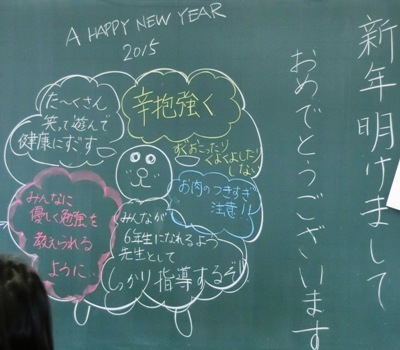 A HAPPY NEW YEAR
2015
新年明けまして
おめでとうございます
た〜くさん
笑って遊んで
健康にすごす。
辛抱強く
すぐおこったり
くよくよしたり
しない
お肉のつきすぎ
注意!!
みんなに
優しく勉強を
教えられる
ように…
みんなが
6年生になれるよう
先生として
しっかり指導するぞ!